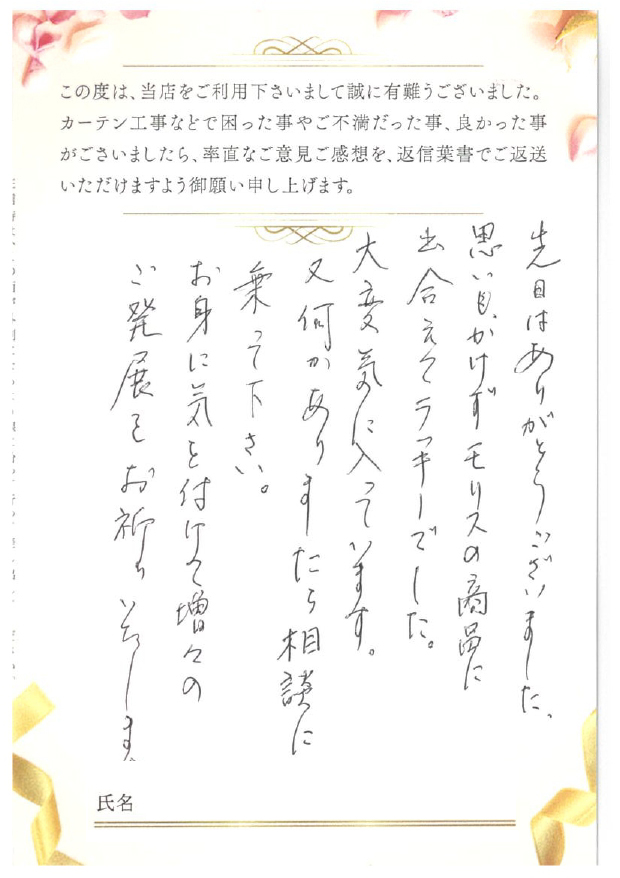 この度は、当店をご利用下さいまして誠に有難うございました。
カーテン工事などで困った事やご不満だった事、良かった事
がございましたら、率直なご意見ご感想を、返信葉書でご返送
いただけますよう御願い申し上げます。
先日はありがとうございました、
思い目がけずモリスの商品に
出合えてラッキーでした。
大変気に入っています。
又何かありましたら相談に
乗って下さい。
お身に気を付けて増々の
ご発展をお祈りいたします。
氏名